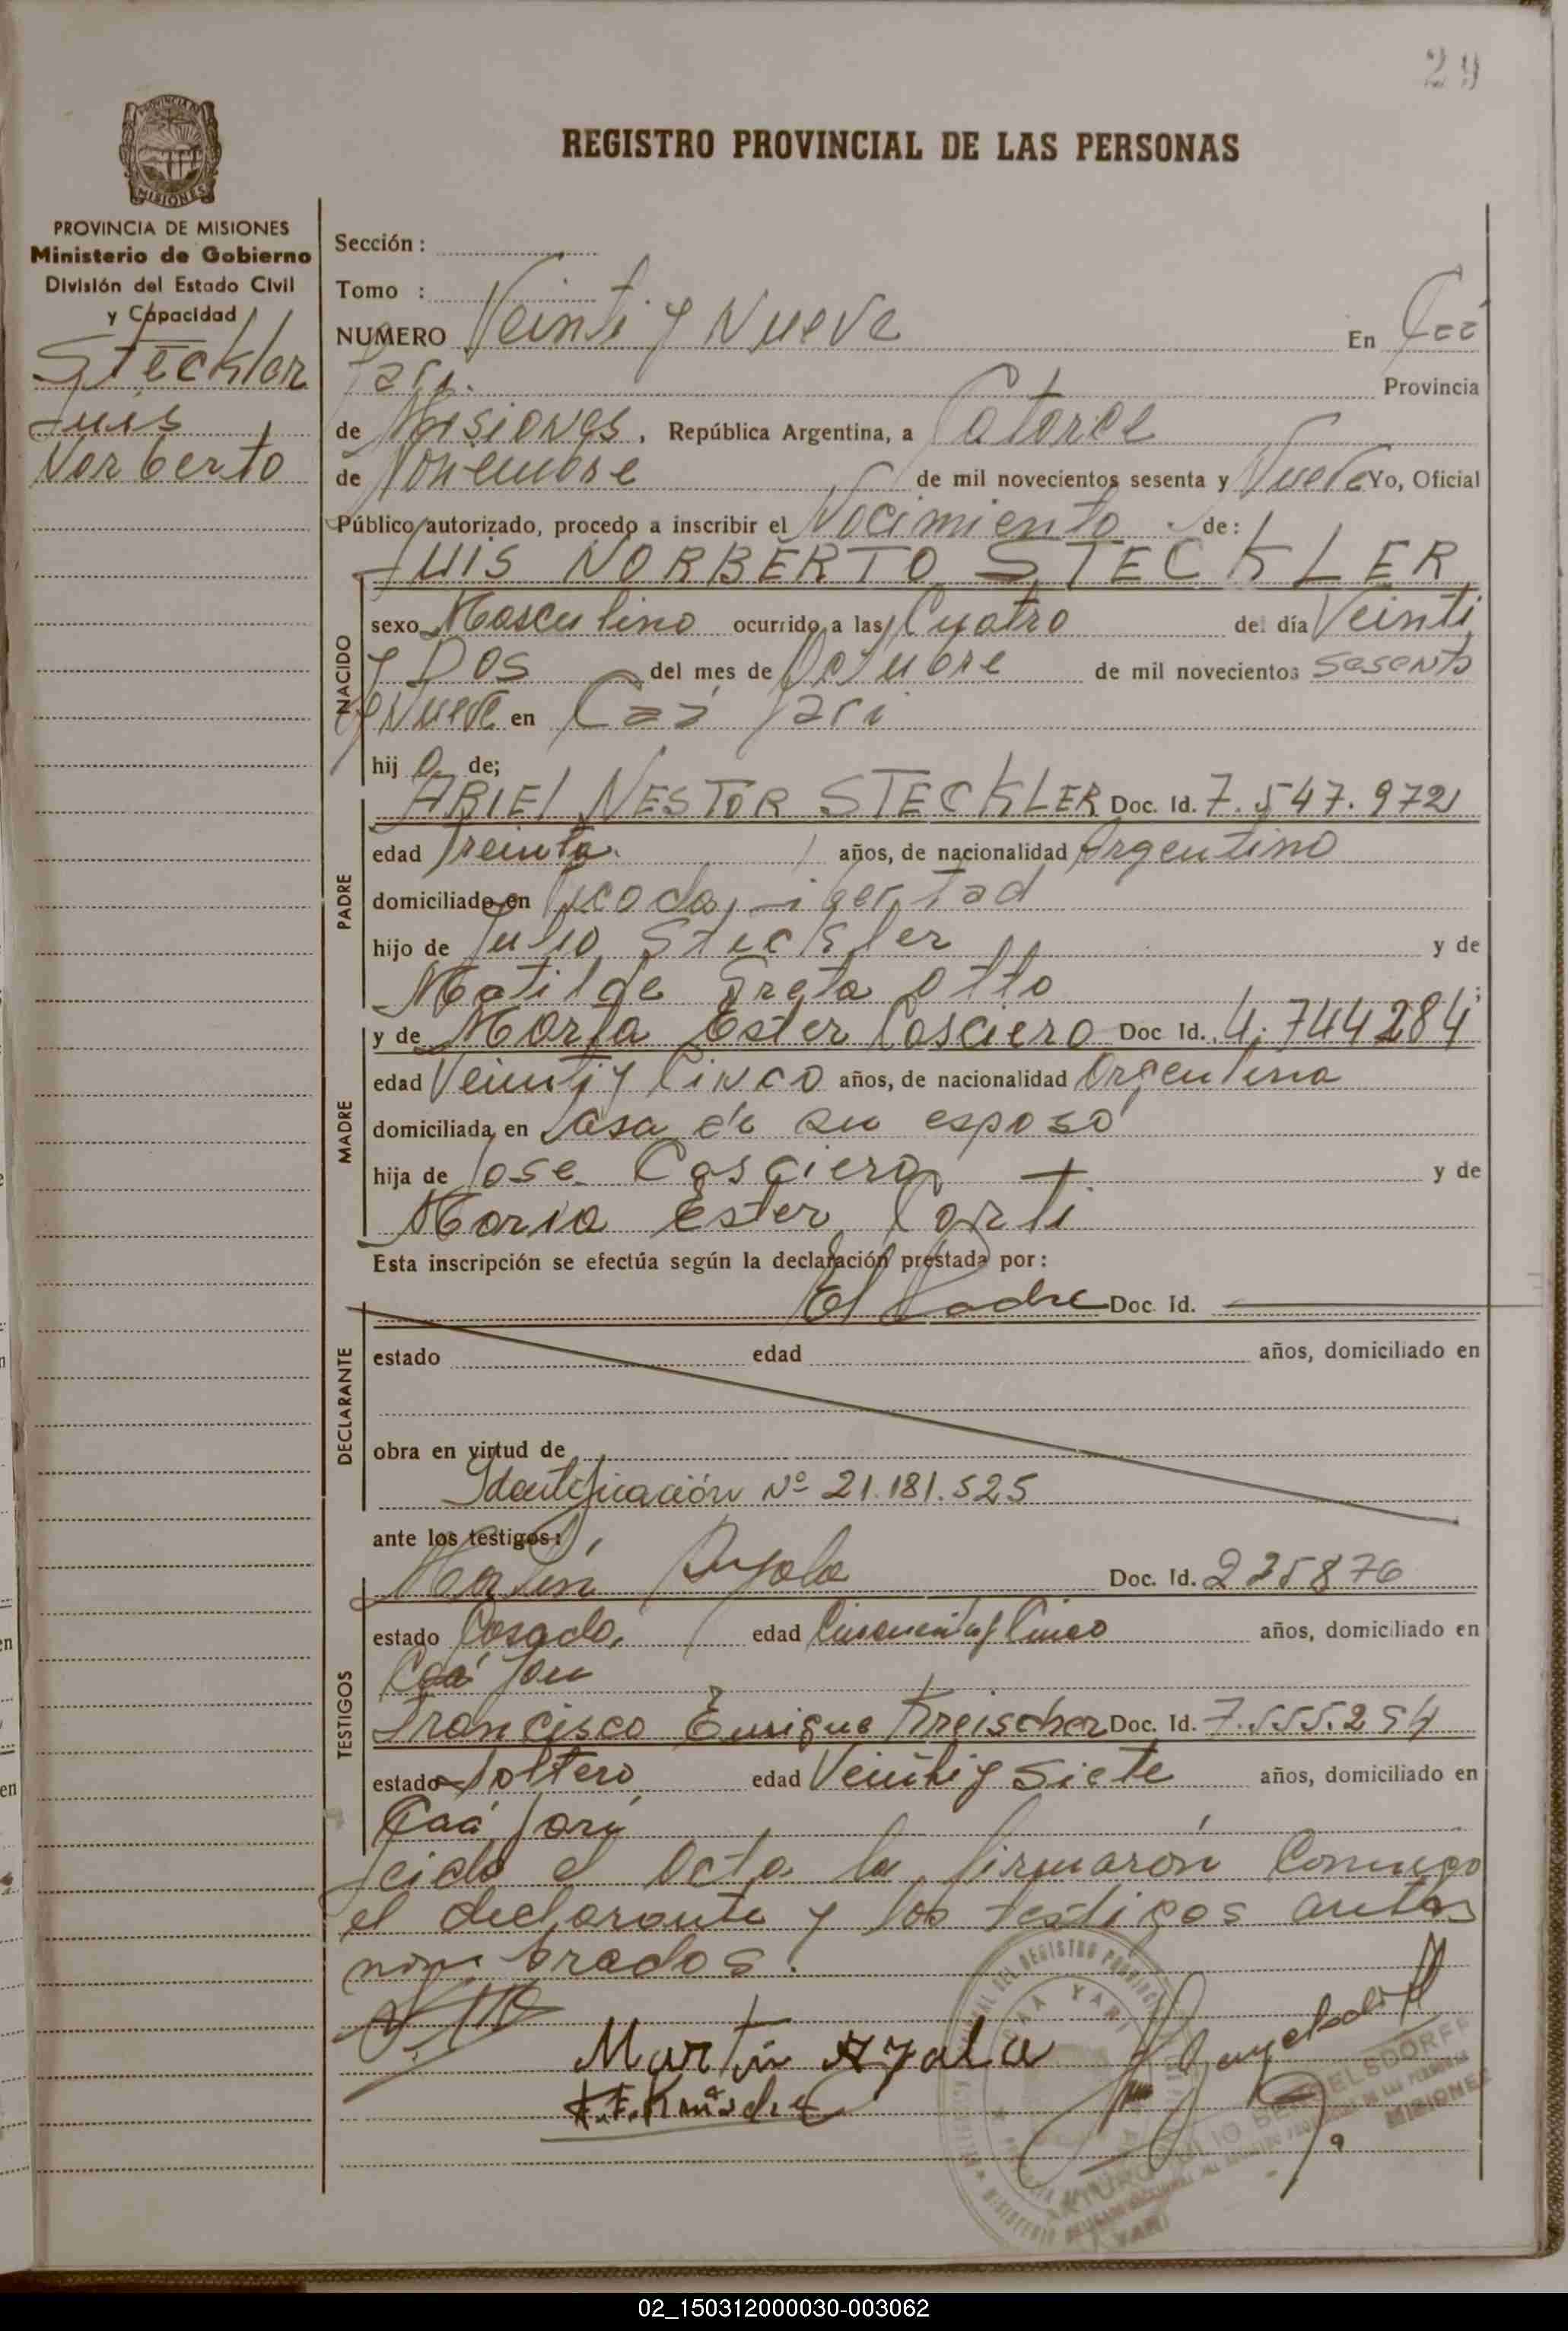 29
REGISTRO PROVINCIAL DE LAS PERSONAS
PROVINCIA DE MISIONES
Ministerio de Gobierno
División del Estado Civil
y Capacidad
Steckler
Luis
Norberto
Sección :
Tomo :
NUMERO Veinti y Nueve En Caá
Yari. Provincia
de Misiones, República Argentina, a Catorce
de Noviembre de mil novecientos sesenta y Nueve Yo, Oficial
Público autorizado, procedo a inscribir el Nacimiento de:
NACIDO
LUIS NORBERTO STECKLER
sexo Masculino ocurrido a las Cuatro del día Veinti
y Dos del mes de Octubre de mil novecientos sesenta
y Nueve en Caá Yari
hij o de;
PADRE
ARIEL NESTOR STECKLER Doc. Id. 7.547.972
edad Treinta años, de nacionalidad Argentino
domiciliado en Picada Libertad
hijo de Julio Steckler y de
Matilde Greta Otto
MADRE
y de Marta Ester Casciero Doc Id. 4.744284
edad Veinti y Cinco años, de nacionalidad Argentina
domiciliada en Casa de su esposo
hija de Jose Casciero y de
Maria Ester Corti
Esta inscripción se efectúa según la declaración prestada por:
DECLARANTE
El Padre Doc. Id.
estado edad años, domiciliado en
obra en virtud de
Identificación Nº 21.181.525
ante los testigos:
TESTIGOS
Martín Ayala Doc. Id. 235876
estado Casado edad Cincuenta y Cinco años, domiciliado en
Caá Yari
Francisco Enrique Kreischer Doc. Id. 7.555.254
estado Soltero edad Veinti y Siete años, domiciliado en
Caá Yari
Leida el Acta la firmarón Conmigo
el declarante y los testigos antes
nombrados.
Martín Ayala
CAA YARI
MISIONES
02_150312000030-003062